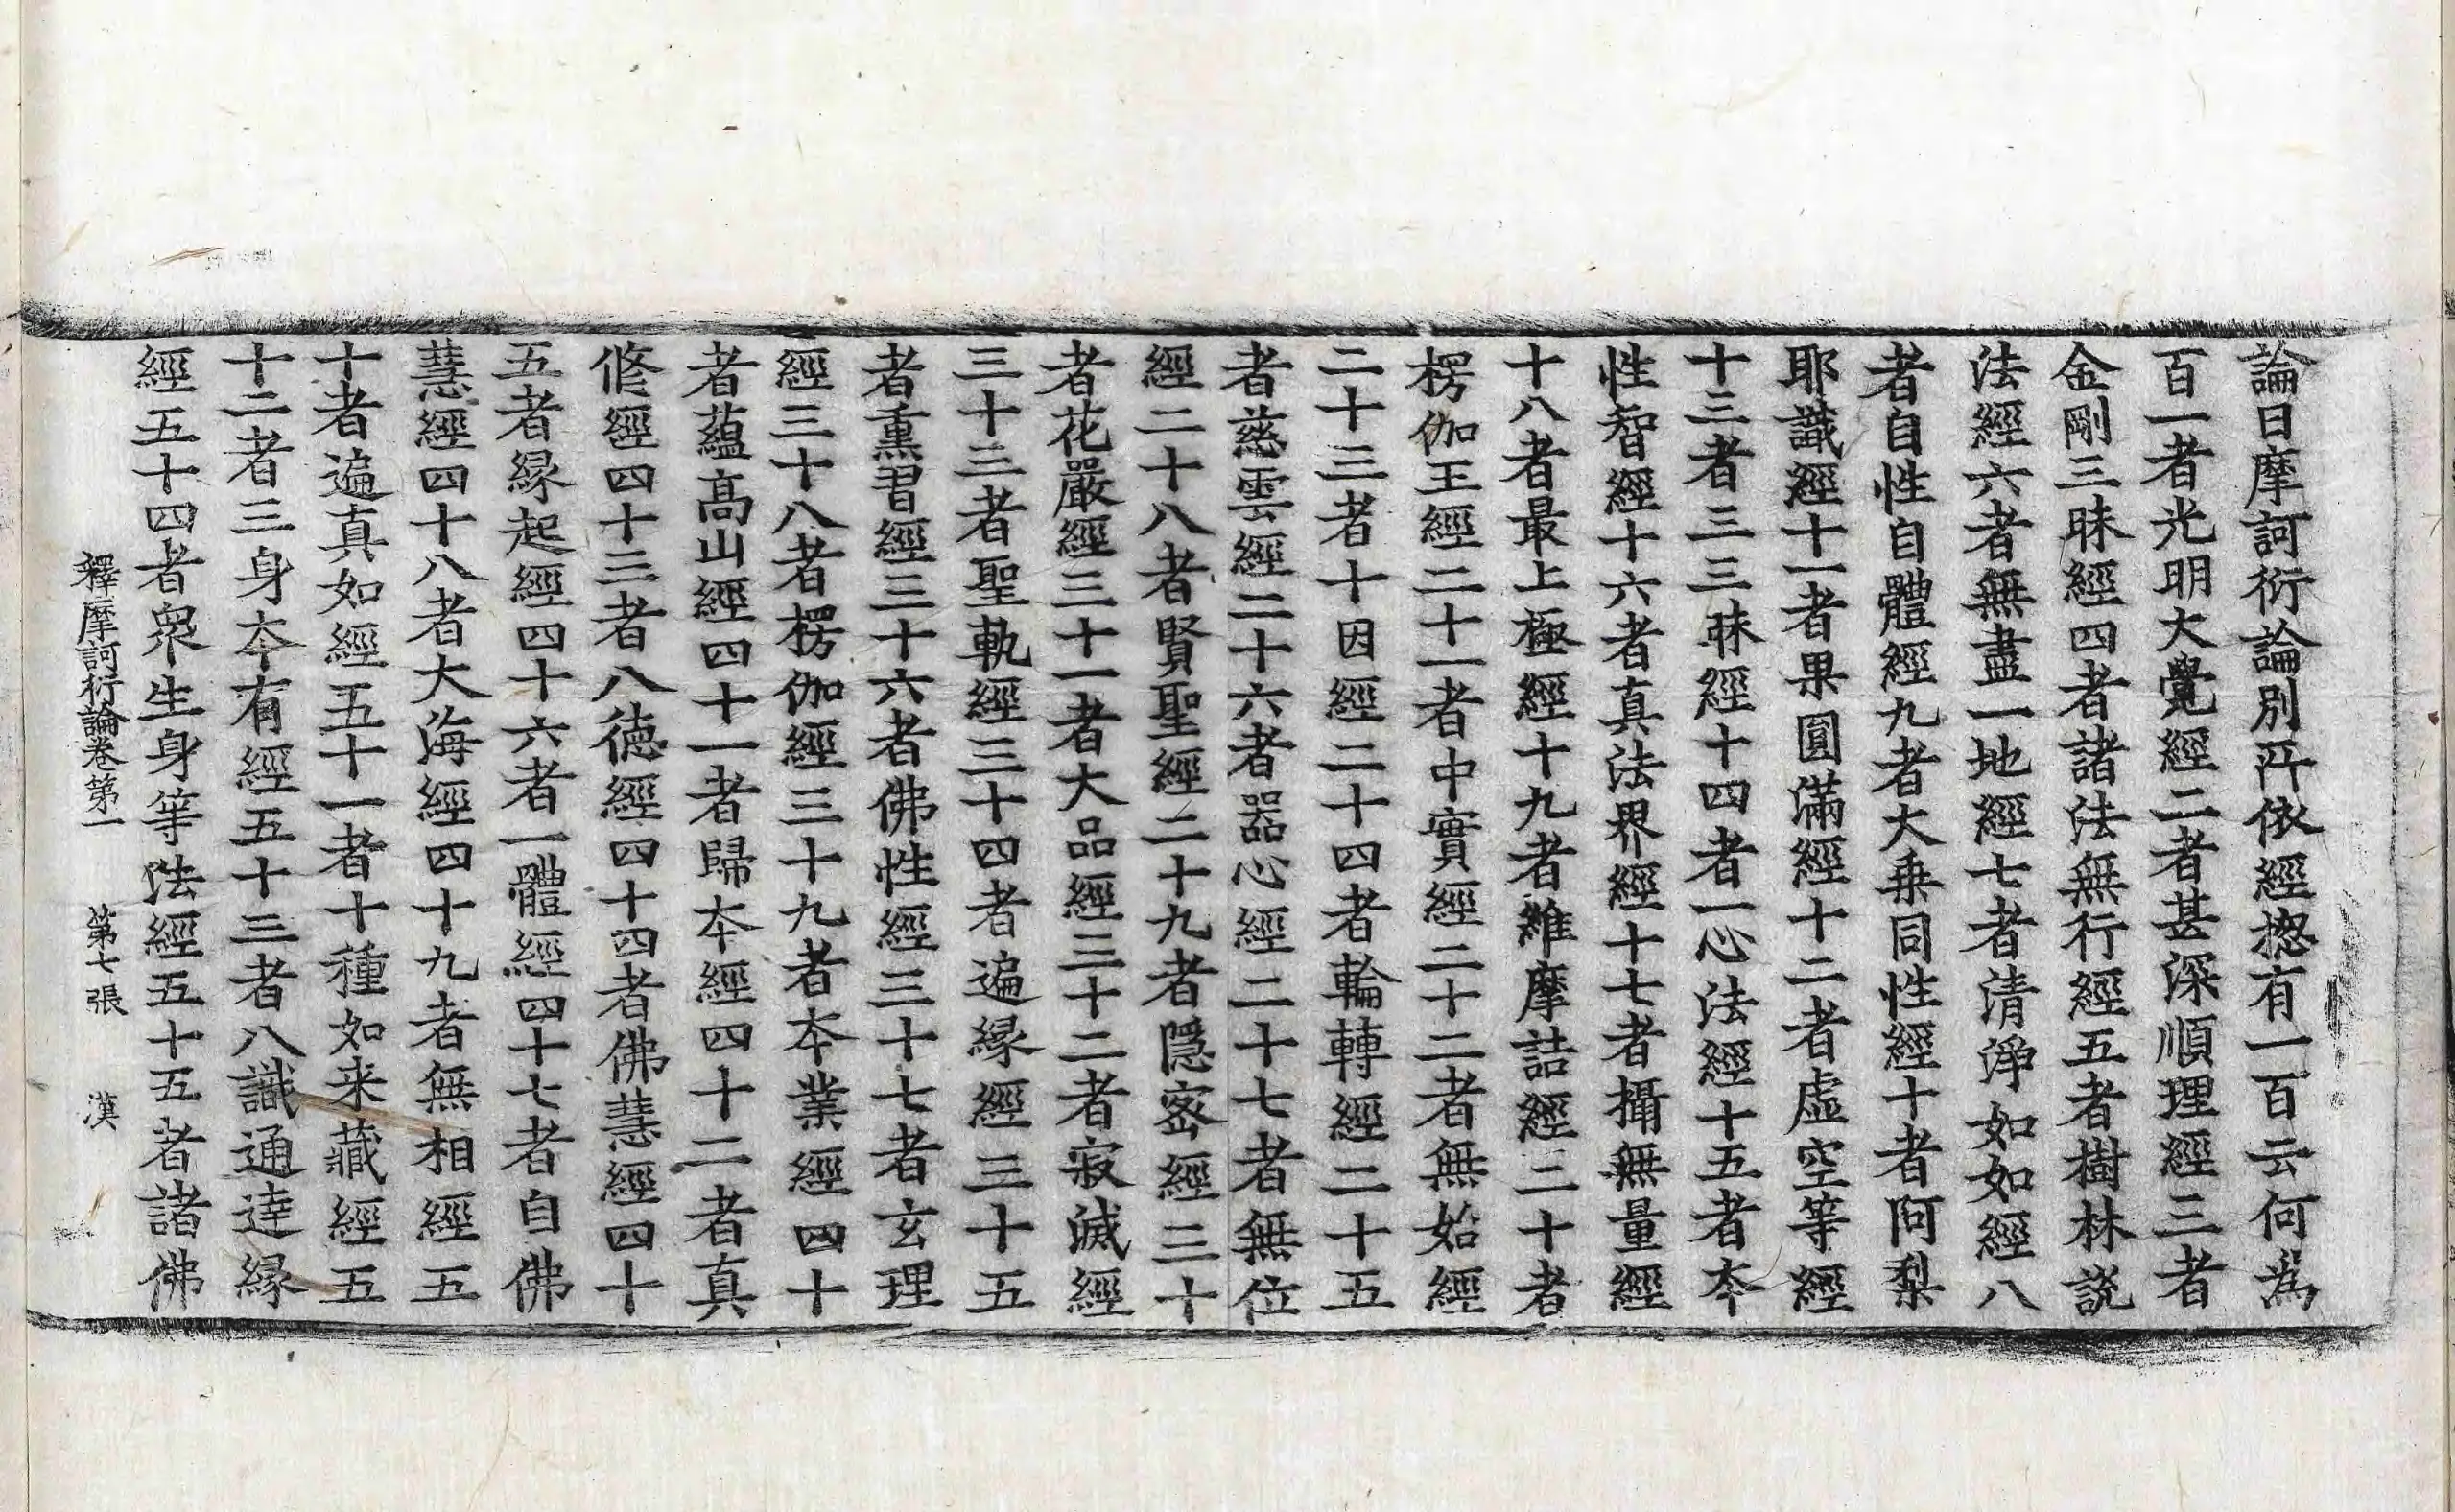 論曰摩訶衍論別所依經揔有一百云何為
百一者光明大覺經二者甚深順理經三者
金剛三昧經四者諸法無行經五者樹林説
法經六者無盡一地經七者清淨如如經八
者自性自體經九者大乗同性經十者阿梨
耶識經十一者果圓滿經十二者虛空等經
十三者三三昧經十四者一心法經十五者夲
性智經十六者真法界經十七者攝無量經
十八者最上極經十九者維摩詰經二十者
楞伽王經二十一者中實經二十二者無始經
二十三者十因經二十四者輪轉經二十五
者慈雲經二十六者器心經二十七者無位
經二十八者賢聖經二十九者隱密經三十
者花嚴經三十一者大品經三十二者寂滅經
三十三者聖軌經三十四者遍縁經三十五
者熏習經三十六者佛性經三十七者玄理
經三十八者楞伽經三十九者夲業經四十
者蘊髙山經四十一者歸夲經四十二者真
修經四十三者八徳經四十四者佛慧經四十
五者縁起經四十六者一體經四十七者自佛
慧經四十八者大海經四十九者無相經五
十者遍真如經五十一者十種如来藏經五
十二者三身夲有經五十三者八識通達縁
經五十四者衆生身等法經五十五者諸佛
釋摩訶衍論卷第一　第七張　漢